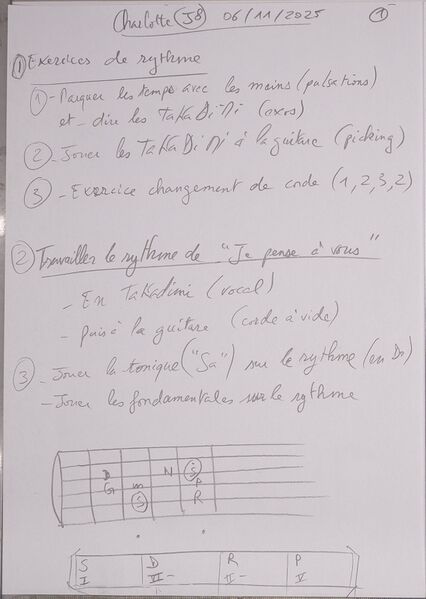 Charlotte (J8) 06/11/2025 1
① Exercices de rythme
① - Marquer les temps avec les mains (pulsations)
et - dire les TaKaDiMi (exos)
② - Jouer les TaKaDiMi à la guitare (picking)
③ - Exercice changement de corde (1, 2, 3, 2)
② Travailler le rythme de "Je pense à vous"
- En Takadimi (vocal)
- puis à la guitare (corde à vide)
③ - Jouer la tonique ("Sa") sur le rythme (en Do)
- Jouer les fondamentales sur le rythme
D N S
G m P
S R
S D R P
I VI- II- V